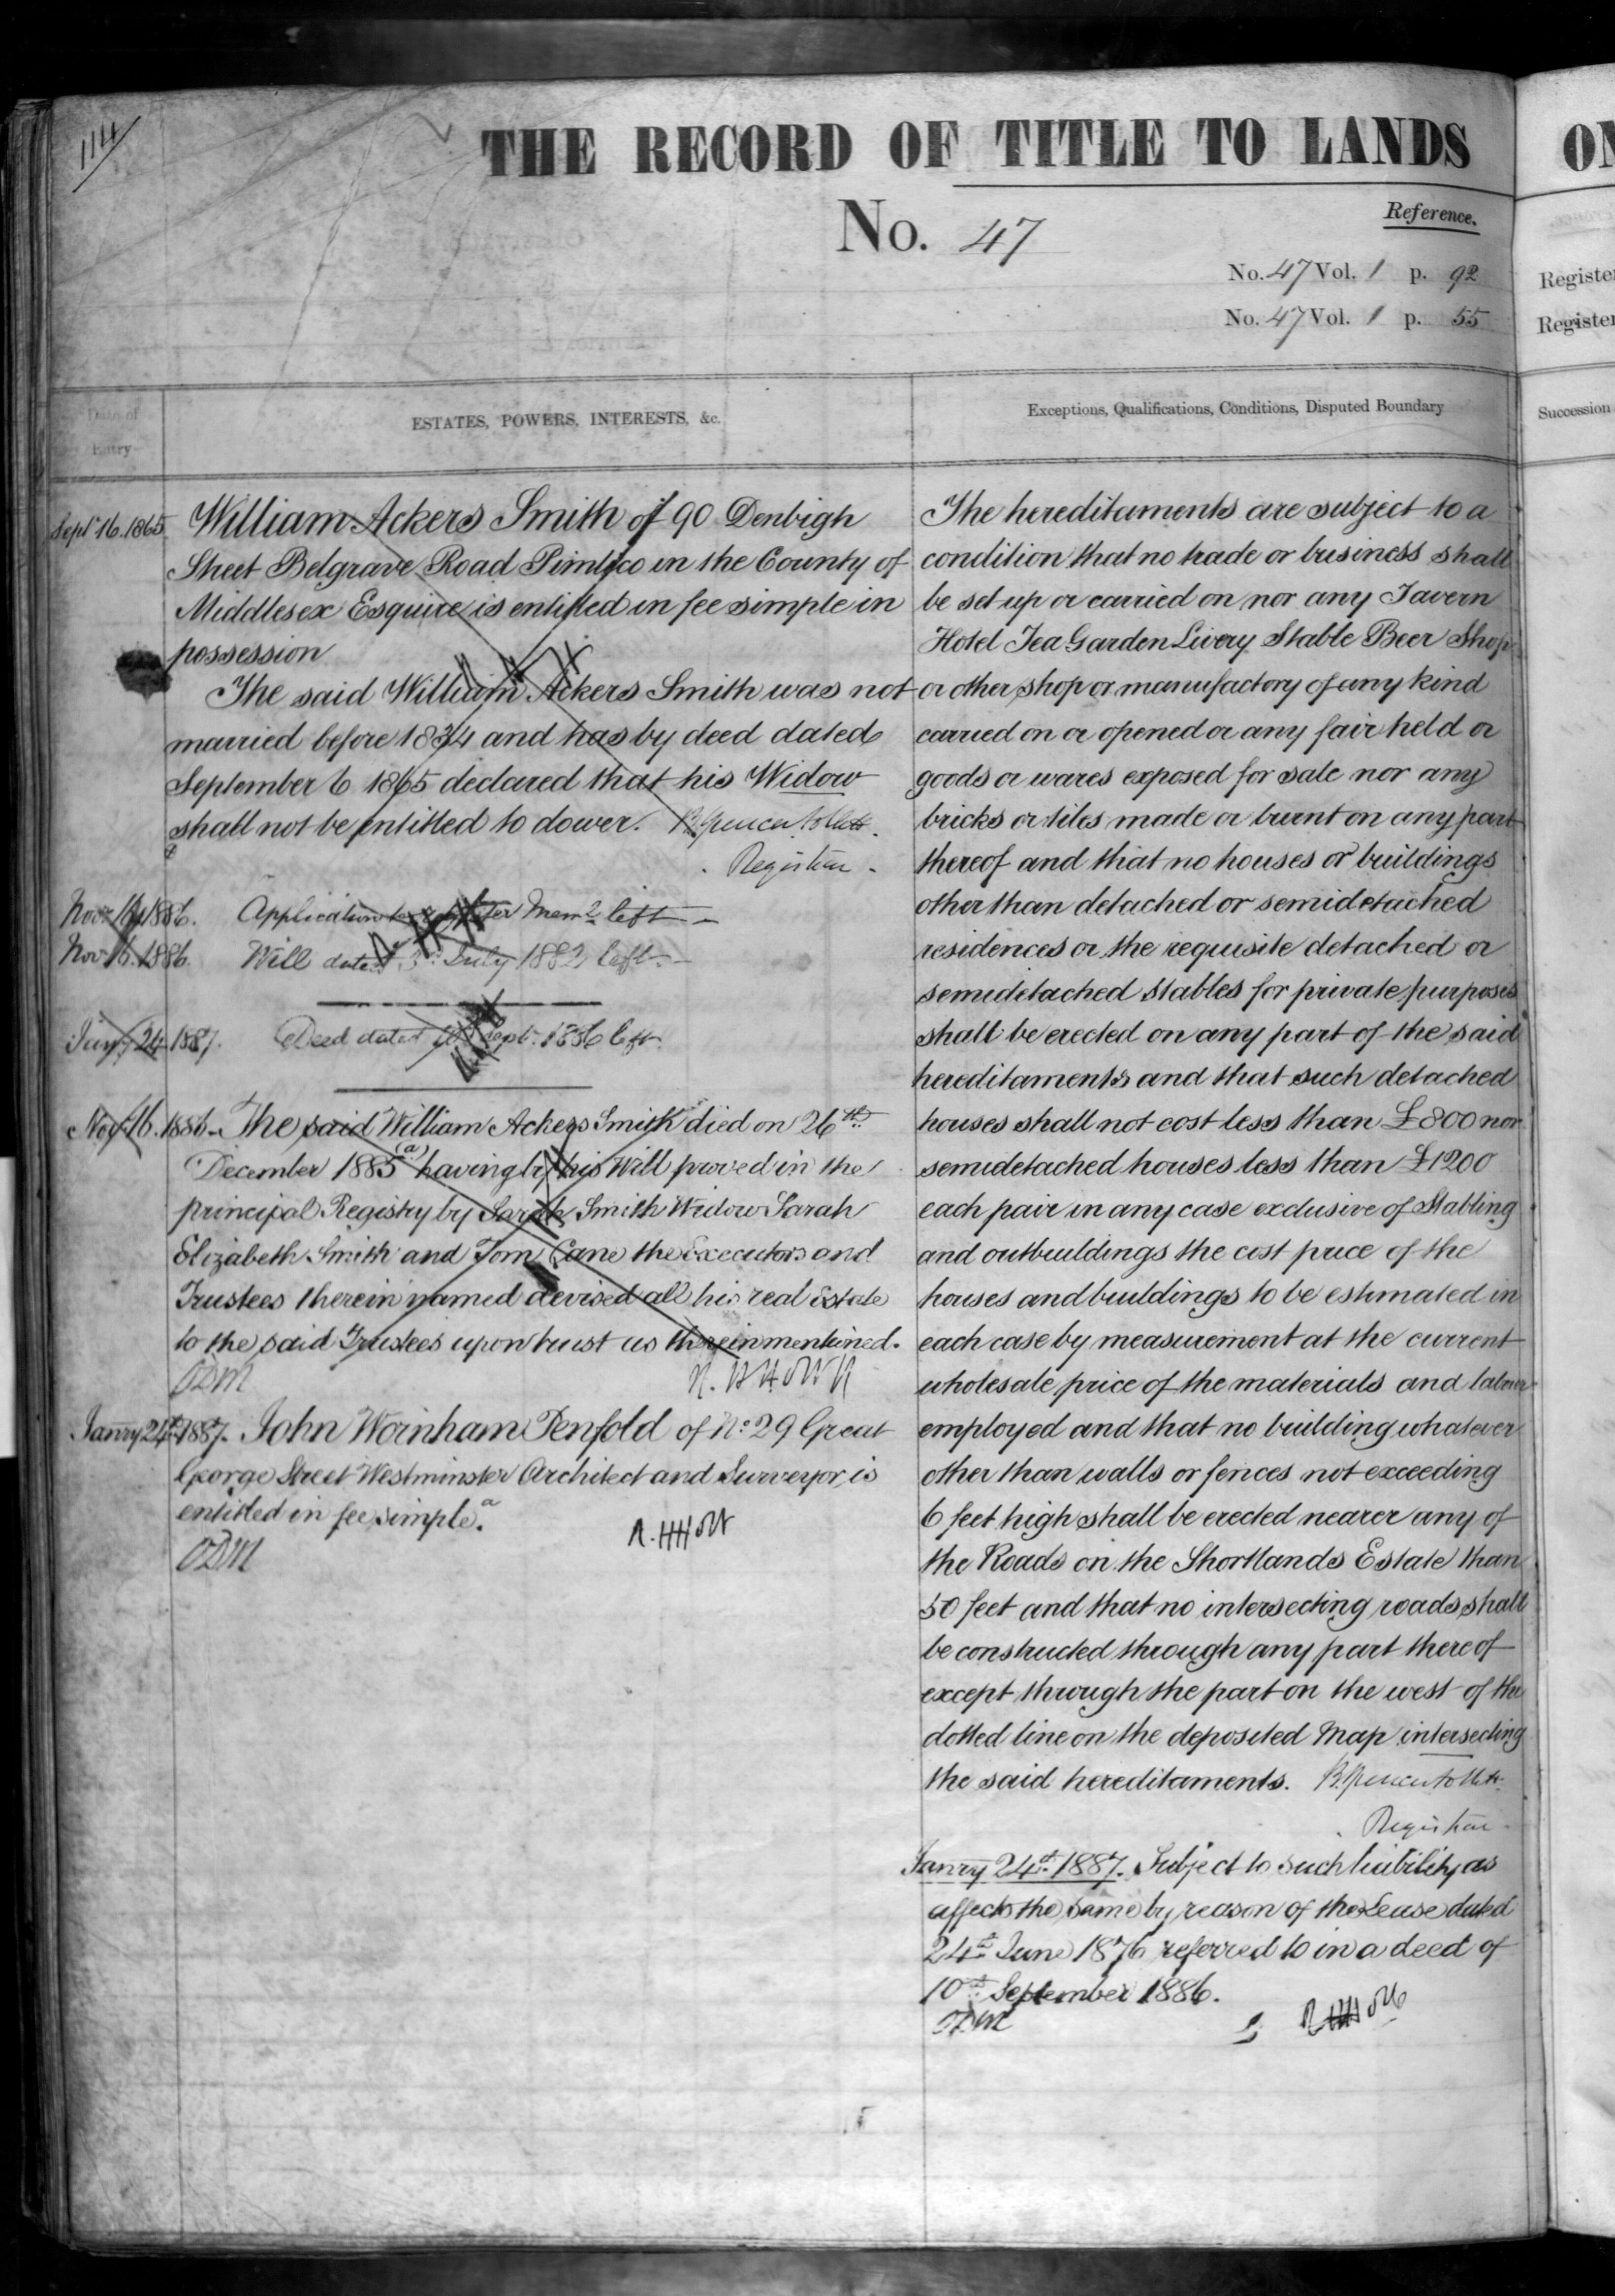 114
THE RECORD OF TITLE TO LANDS
No. 47
Reference.
No. 47 Vol. 1 p. 92
No. 47 Vol. 1 p. 55
Date of
Entry
ESTATES, POWERS, INTERESTS, &c.
Sept 16. 1865
William Ackers Smith of 90 Denbigh
Street Belgrave Road Pimlico in the County of
Middlesex Esquire is entitled in fee simple in
possession
The said William Ackers Smith was not
married before 1834 and has by deed dated
September 6 1865 declared that his Widow
shall not be entitled to dower.
Registrar.
Nov 16 1886. Application to Mem left
Nov 16. 1886. Will dated July 1882 left.
Jany 24 1887. Deed dated 10 Sept. 1886 left
Nov 16. 1886. The said William Ackers Smith died on 26th
December 1885 having by his Will proved in the
principal Registry by Sarah Smith Widow Sarah
Elizabeth Smith and Tom Cane the Executors and
Trustees therein named devised all his real Estate
to the said Trustees upon trust as therein mentioned.
Janry 24th 1887. John Wornham Penfold of No 29 Great
George Street Westminster Architect and Surveyor, is
entitled in fee simple. a
Exceptions, Qualifications, Conditions, Disputed Boundary
The hereditaments are subject to a
condition that no trade or business shall
be set up or carried on nor any Tavern
Hotel Tea Garden Livery Stable Beer Shop
or other shop or manufactory of any kind
carried on or opened or any fair held or
goods or wares exposed for sale nor any
bricks or tiles made or burnt on any part
thereof and that no houses or buildings
other than detached or semidetached
residences or the requisite detached or
semidetached stables for private purposes
shall be erected on any part of the said
hereditaments and that such detached
houses shall not cost less than £800 nor
semidetached houses less than £1200
each pair in any case exclusive of Stabling
and outbuildings the cost price of the
houses and buildings to be estimated in
each case by measurement at the current
wholesale price of the materials and labour
employed and that no building whatever
other than walls or fences not exceeding
6 feet high shall be erected nearer any of
the Roads on the Shortlands Estate than
50 feet and that no intersecting roads shall
be constructed through any part thereof
except through the part on the west of the
dotted line on the deposited Map intersecting
the said hereditaments.
Registrar.
Janry 24th 1887. Subject to such liability as
affects the same by reason of the Lease dated
24th June 1876 referred to in a deed of
10th September 1886.
ON
Register
Register
Succession